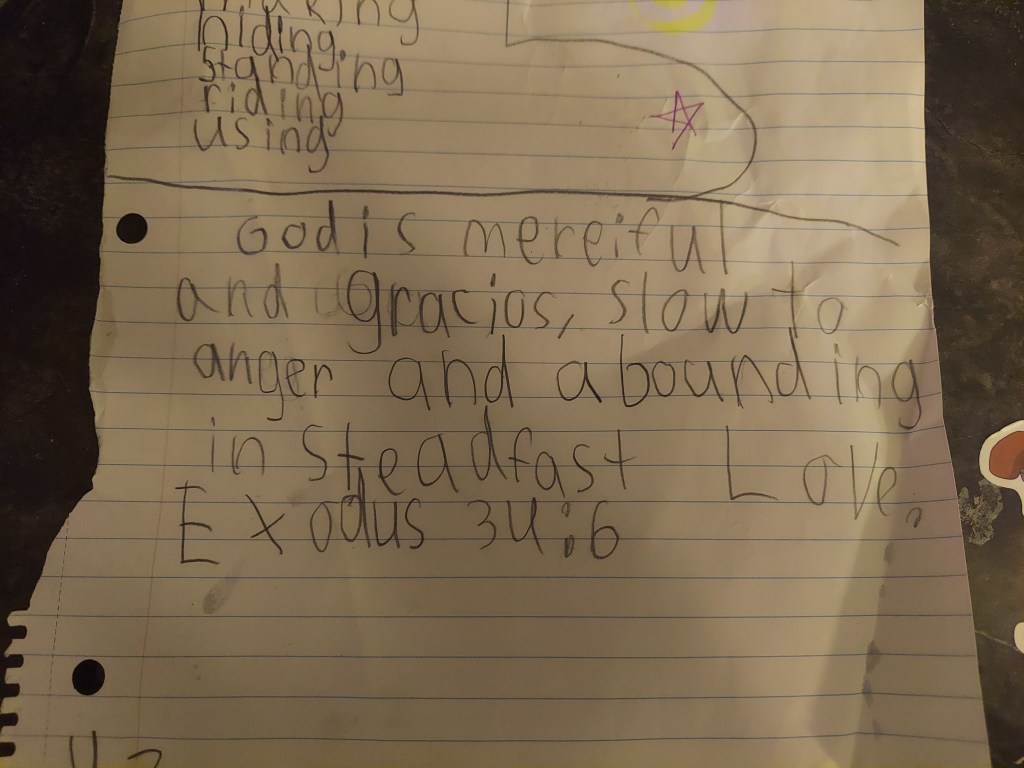 hiding
standing
riding
using
God is merciful
and gracios, slow to
anger and abounding
in steadfast Love.
Exodus 34:6